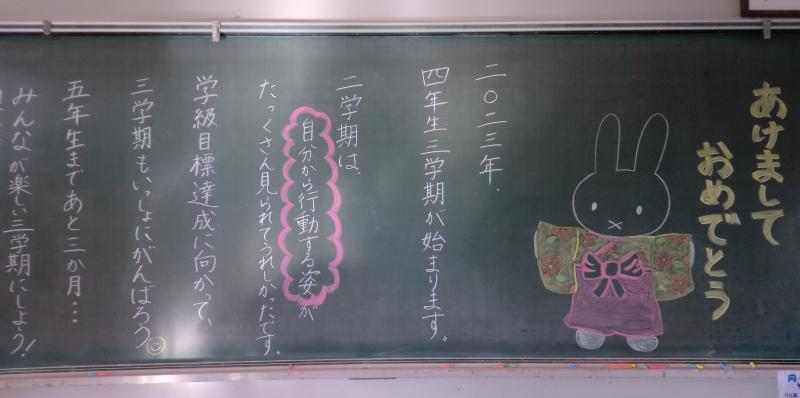 あけまして
おめでとう
二〇二三年、
四年生三学期が始まります。
二学期は、
自分から行動する姿が
たっくさん見られてうれしかったです。
学級目標達成に向かって、
三学期も、いっしょにがんばろう
五年生まであと三か月…
みんなが楽しい三学期にしよう！